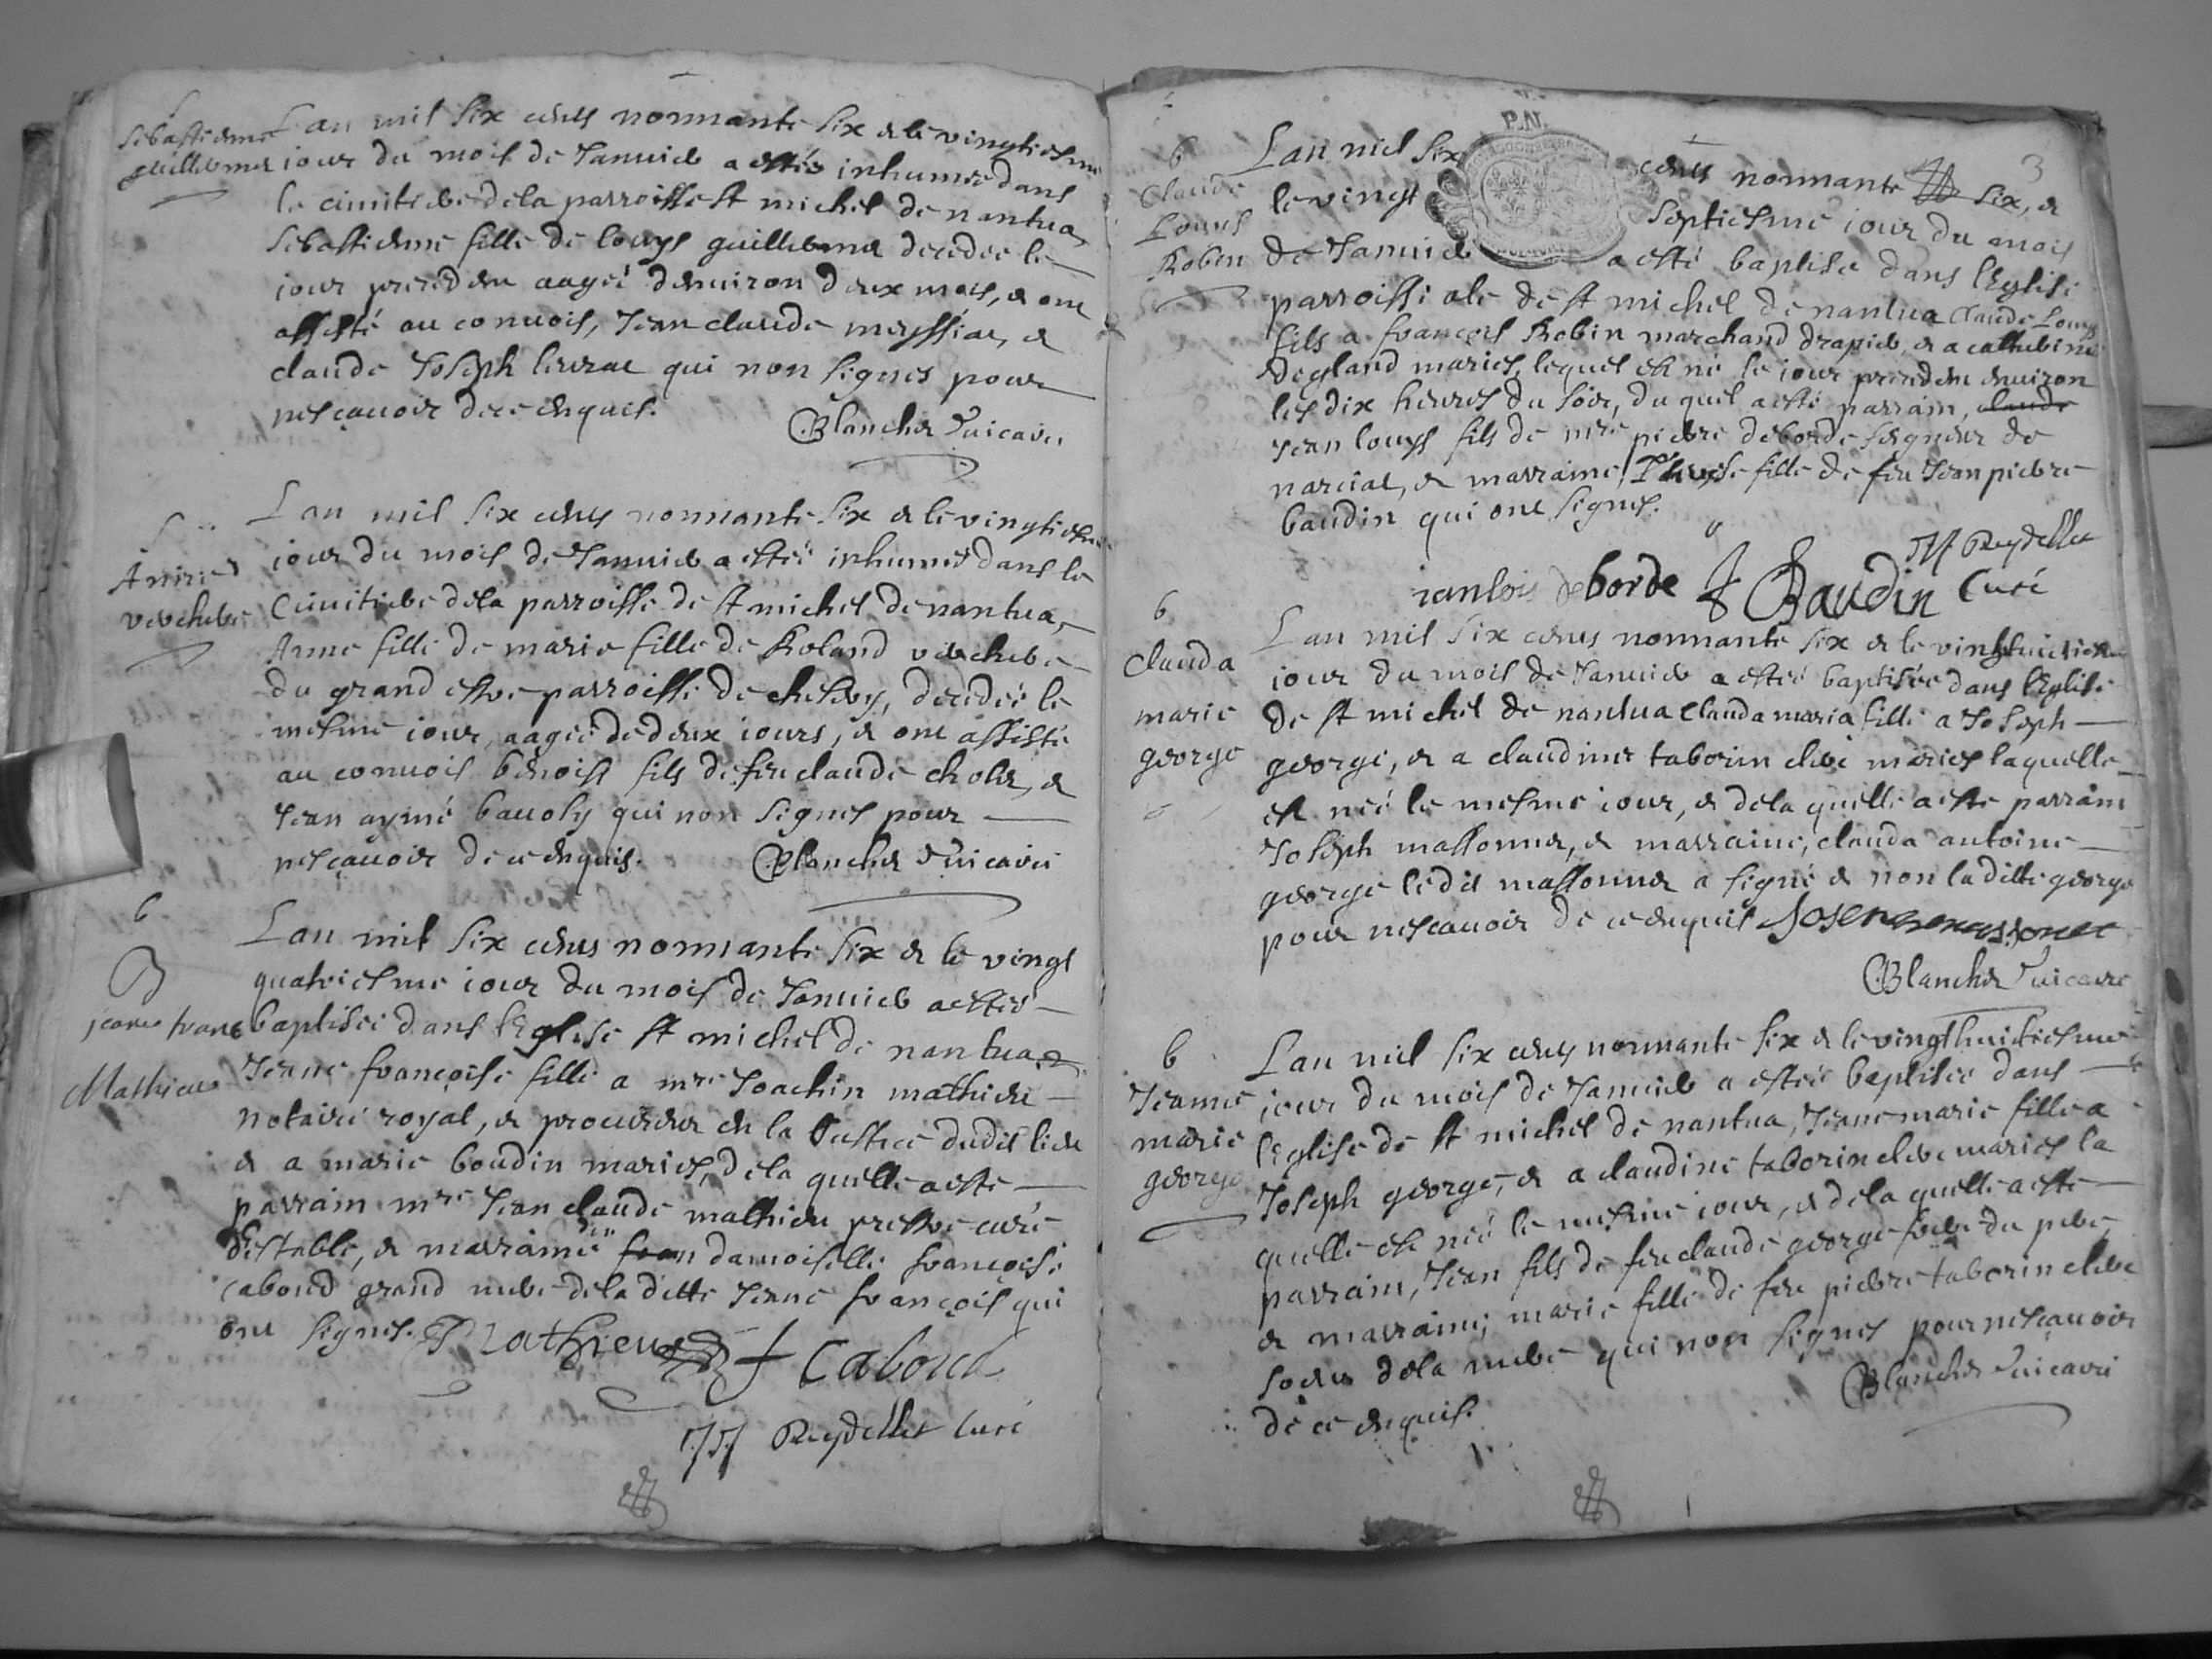 Sebastienne
guillermet
Lan mil six cents nonnante six & le vingtiesme
iour du mois de Januier a estée inhumée dans
le cimitiere de la parroisse st michel de nantua
Sebastienne fille de louys guillermet decedee le
iour precedent aagée denuiron deux mois, & ont
assisté au conuois, Jean claude meyssiat, &
claude Joseph leurat qui non signes pour
nescauoir de ce enquis.
Blanchet Vicaire
Anne
vercherre
Lan mil six cents nonnante six & le vingtiesme
iour du mois de Januier a estée inhumée dans le
Cimitiere dela parroisse de st michel de nantua,
Anne fille de marie fille de Roland verchere
du grand parroisse de chesery, decedée le
mesme iour, aagée de deux iours, & ont assisté
au conuois benoist fils de feu claude cholet, &
Jean aymé qui non signes pour
nescauoir de ce enquis. Blanchet Vicaire
6
jeane franc
Mathieu
Lan mil six cents nonnante six & le vingt
quatriesme iour du mois de Januier a estée
baptisée dans lEglise st michel de nantua
Jeane francoise fille a mre Joachin mathieu
notaire royal, & procureur en la Justice dudit lieu
& a marie boudin maries, de la quelle a esté
parrain mre Jean claude mathieu prestre curé
destable, & marraine damoiselle francoise
caboud grand mere de la ditte Jeane francois qui
ont signes. Mathieu f Caboud
JJ Reydellet Curé
P.N.
3
6
Claude
Louys
Robin
Lan mil six cents nonnante six, &
le vingt septiesme iour du mois
de Januier a esté baptise dans lEglise
parroissi ale de st michel de nantua Claude Louys
fils a francois Robin marchand drapier, & a catherine
degland maries, lequel est né le iour precedent enuiron
les dix heures du soir, du quel a esté parrain, claude
Jean louys fils de mre pierre deborde seigneur de
narciat, & marraine, Therese fille de feu Jean pierre
baudin qui ont signes.
JJ Reydellet
ianlois deborde T Baudin Curé
6
Clauda
marie
george
Lan mil six cents nonnante six & le vingthuictiesme
iour du mois de Januier a estée baptisée dans lEglise
de st michel de nantua Clauda maria fille a Joseph
george, & a claudine taborin elere maries laquelle
est née le mesme iour, & dela quelle a esté parrain
Joseph massonnet, & marraine, clauda antoine
george le dit massonnet a signé & non la ditte george
pour nescauoir de ce enquis Joseph massonet
Blanchet Vicaire
6
Jeanne
marie
george
Lan mil six cents nonnante six & le vingthuictiesme
iour du mois de Januier a estée baptisée dans
lEglise de st michel de nantua, Jeane marie fille a
Joseph george, & a claudine taborin elere maries la
quelle est née le mesme iour, & dela quelle a esté
parrain, Jean fils de feu claude george frere du pere,
& marraine, marie fille de feu pierre taborin elere
soeur dela mere qui non signes pour nescauoir
de ce enquis.
Blanchet Vicaire